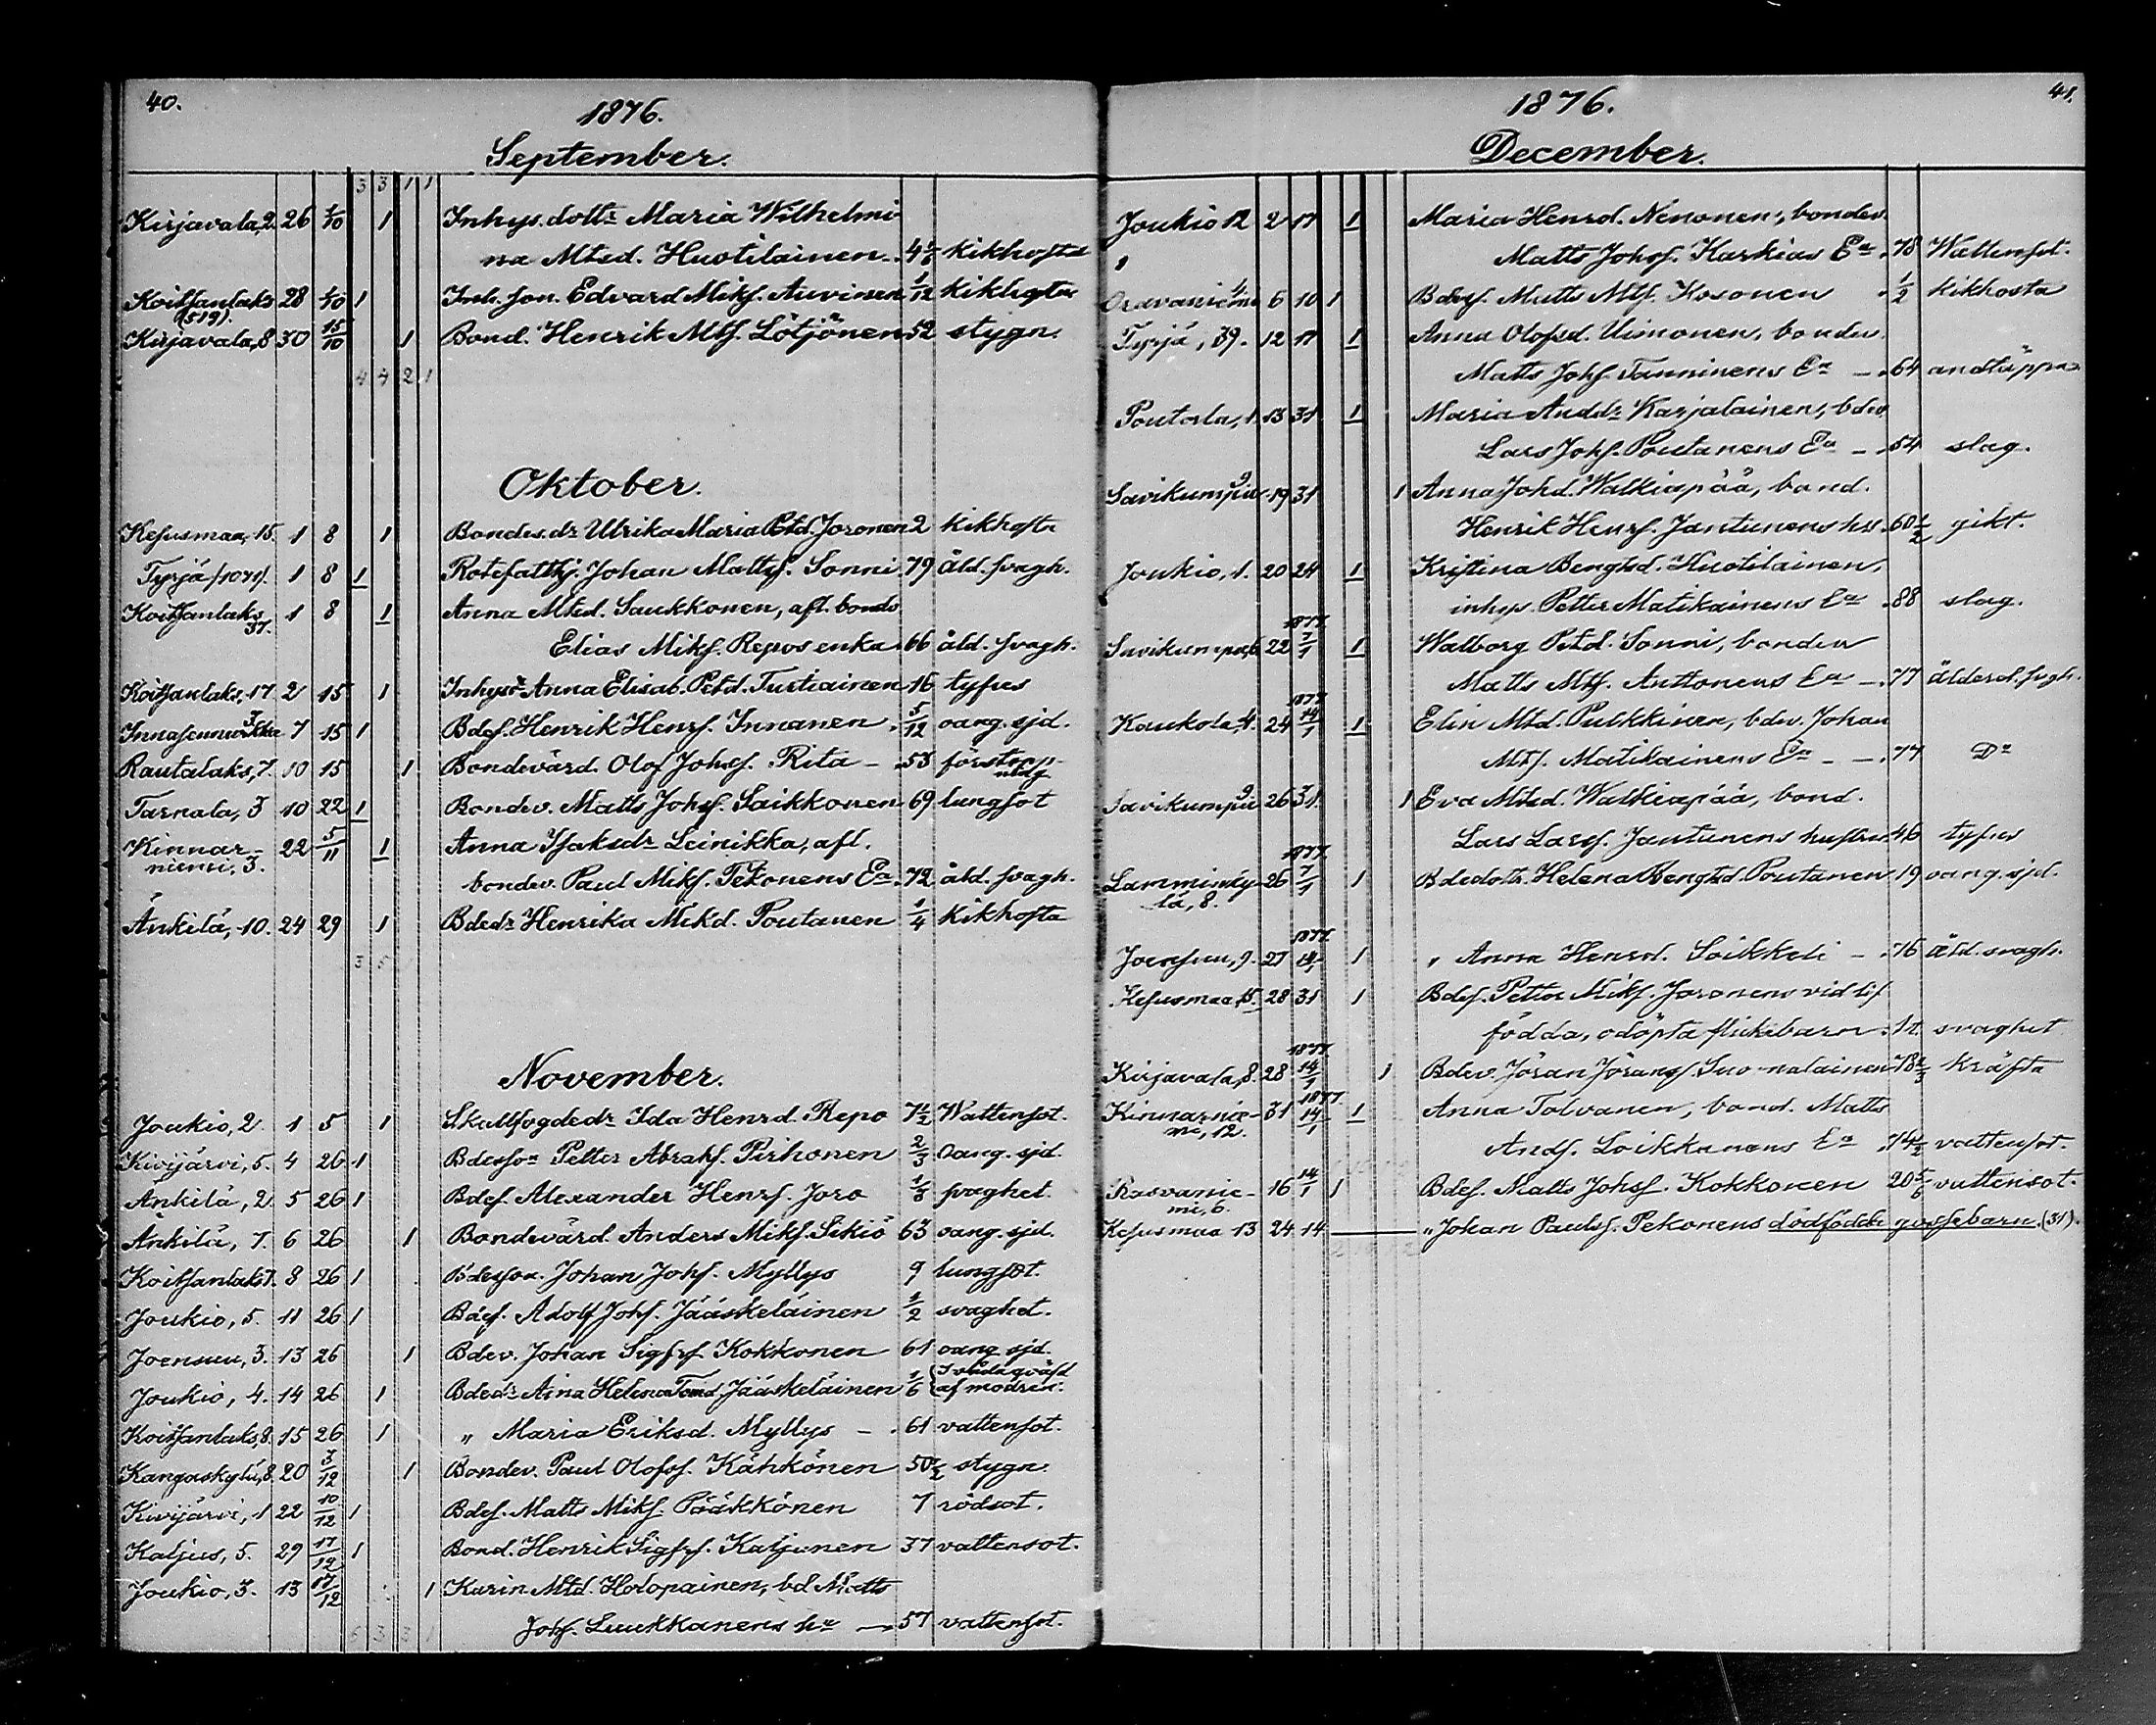 40.
1876.
September.
3 3 1 1
Kirjavala, 2. 26 1/10 1 Inhys. dottr Maria Wilhelmi
na Mtsd. Huotilainen 4 kikhosta
Koitsanlaks 28 1/10 1 Inh. son. Edvard Mikf. Auvinen 1/12 kikhosta
(519).
Kirjavala, 8 30 15/10 1 Bond. Henrik Mtf. Lötjönen 52 stygn.
4 4 2 1
Oktober.
Kesusmaa, 15. 1 8 1 Bondes. dr Ulrika Maria Petd. Joronen 2 kikhosta
Tyrjä (1071). 1 8 1 Rotefatthj. Johan Mattsf. Sonni 79 åld. svagh.
Koitsanlaks 37. 1 8 1 Anna Mtsd. Saukkonen, afl. bonds
Elias Mikf. Repos enka 66 åld. svagh.
Koitsanlaks, 17. 2 15 1 Inhysdr Anna Elisab. Petd. Turtiainen 16 tyfus
7 15 1 Bdef. Henrik Henrf. Innanen 5/12 oang. sjd.
Rautalaks, 7. 10 15 1 Bondevärd. Olof Johsf. Rita 53
Tarnala, 3 10 22 1 Bondev. Matts Johsf. Saikkonen 69 lungsot
Kinnar- 22 5/11 1 Anna Isaksdr Leinikka, afl.
niemi, 3.
bondev. Paul Mikf. Tekonens Ea 72 åld. svagh.
Änkilä, 10. 24 29 1 Bdedr Henrika Mikd. Poutanen 1/4 kikhosta
3 5
November.
Joukio, 2 1 5 1 Skallfogdedr Ida Henrd. Repo 7 1/2 Wattensot.
Kivijärvi, 5. 4 26 1 Bdesson Petter Abrahf. Pirhonen 2/3 Oang. sjd.
Änkilä, 2. 5 26 1 Bdef. Alexander Henrf. Joro 1/3 svaghet.
Änkilä, 7. 6 26 1 Bondevärd Anders Mikf. Sikiö 63 oang. sjd.
Koitsanlaks 7. 8 26 1 Bdesson. Johan Johf. Myllys 9 lungsot.
Joukio, 5. 11 26 1 Bdef. Adolf Johf. Jääskeläinen 1/2 svaghet.
Joensuu, 3. 13 26 1 Bdev. Johan Sigfrf. Kokkonen 61 oang sjd.
Joukio, 4. 14 26 1 Bdedr Aina Helena Tomd. Jääskeläinen 1/6 af modren.
Koitsanlaks, 8. 15 26 1 „ Maria Eriksd. Myllys 61 vattensot.
Kangaskylä, 8. 20 3/12 1 Bondev. Paul Olofsf. Kähkönen 50 1/2 stygn.
Kivijärvi, 1 22 10/12 1 Bdef. Matts Mikf. Pääkkönen 7 rödsot.
Kaljus, 5. 29 17/12 1 Bond. Henrik Sigfrf. Kaljunen 37 vattensot.
Joukio, 3. 13 17/12 1 Karin Mtd. Holopainen, bd Matts
Johf. Luukkanens hu 57 vattensot.
6 3 3 1
41.
1876.
December.
Joukio 12 2 17 1 Maria Henrd. Nenonen, bondev.
Matts Johsf. Karkias Ea 78 Wattensot.
Oravaniemi 4. 6 10 1 Bdesf. Matts Mtf. Kosonen 1/2 kikhosta
Tyrjä, 39. 12 17 1 Anna Olofsd. Uimonen, bondev.
Matts Johf. Tanninens Ea 64 andtäppa
Poutala, 1. 13 31 1 Maria Anddr Karjalainen, bdev.
Lars Johf. Poutanens Ea 54 slag.
Savikumpu 9. 19 31 1 Anna Johd. Walkiapää, bond.
Henrik Henrf. Jantunens hst. 60 1/2 gikt.
Joukio, 1. 20 24 1 Kristina Bengtsd. Huotilainen,
inhys. Petter Matikainens Ea 88 slag.
Savikumpu, 6 22 1877. 7/1 1 Walborg Petd. Sonni, bondev
Matts Mtf. Anttonens Ea 77 ålderd. svgh.
Kaukola, 4. 24 1877 14/1 1 Elin Mtd. Pulkkinen, bdev. Johan
Mtf. Matikainens Ea 77 Do
Savikumpu 9 26 31. 1 Eva Mtsd. Walkeapää, bond.
Lars Larsf. Jantunens hustru 46 tyfus
Lamminky- 26 1877. 7/1 1 Bdedottr. Helena Bengtsd. Poutanen 19 oang. sjd.
lä, 8.
Joensuu, 9. 27 1877. 14/1 1 „ Anna Henrd. Soikkeli 76 åld. svagh.
Kesusmaa, 15. 28 31 1 Bdef. Petter Mikf. Joronens vid lif
födda, odöpta flickebarn 1 t. svaghet
Kirjavala, 8. 28 1877. 14/1 1 Bdev. Jöran Jöransf. Suonalainen 78 1/3 kräfta
Kinnarnie- 31 1877. 14/1 1 Anna Tolvanen, bond. Matts
mi, 12.
Andf. Loikkanens Ea 74 1/2 vattensot.
Rasvanie- 16 14/1 1 Bdef. Matts Johsf. Kokkonen 20 5/6 vattensot.
mi, 6.
Kesusmaa 13 24 14 „ Johan Paulsf. Pekonens dödfödde gossebarn. (31).